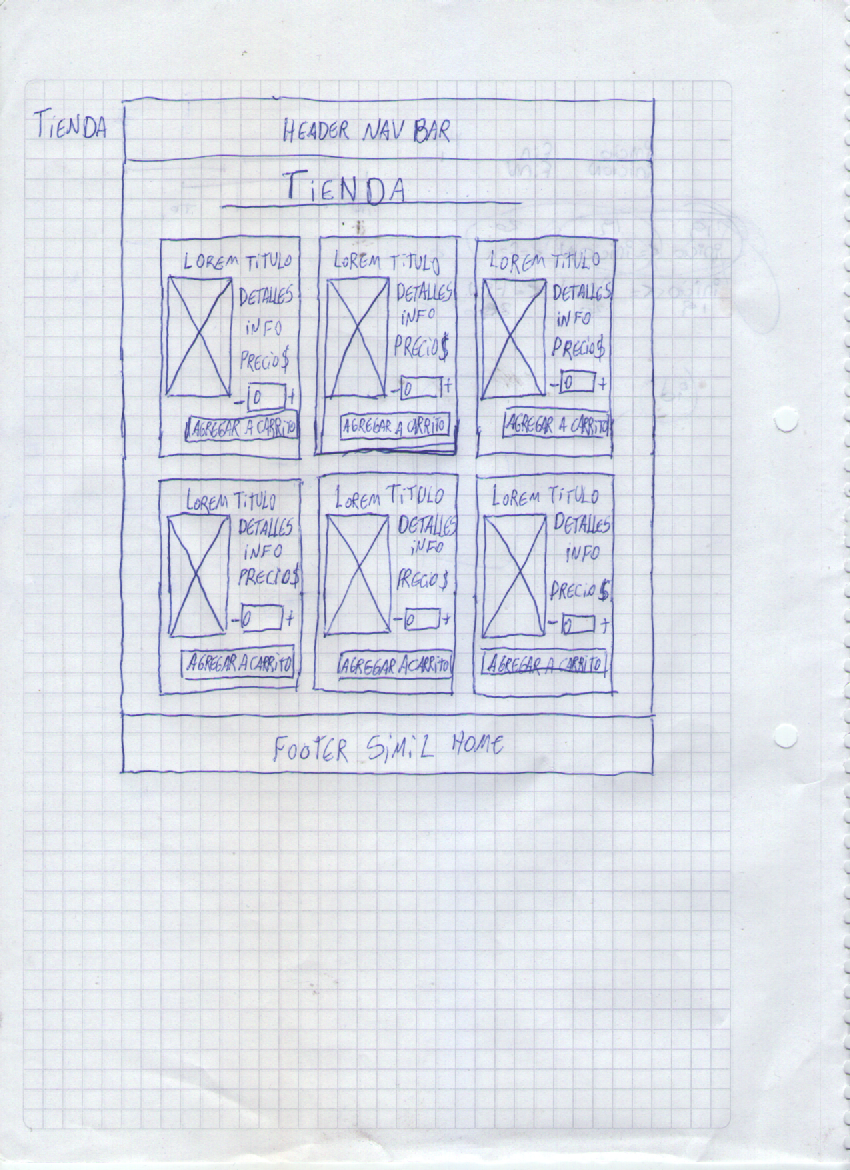 TIENDA
HEADER NAV BAR
TIENDA
LOREM TITULO
DETALLES
INFO
PRECIO$
- 0 +
AGREGAR A CARRITO
LOREM TITULO
DETALLES
INFO
PRECIO$
- 0 +
AGREGAR A CARRITO
LOREM TITULO
DETALLES
INFO
PRECIO$
- 0 +
AGREGAR A CARRITO
LOREM TITULO
DETALLES
INFO
PRECIO$
- 0 +
AGREGAR A CARRITO
LOREM TITULO
DETALLES
INFO
PRECIO$
- 0 +
AGREGAR A CARRITO
LOREM TITULO
DETALLES
INFO
PRECIO $
- 0 +
AGREGAR A CARRITO
FOOTER SIMIL HOME